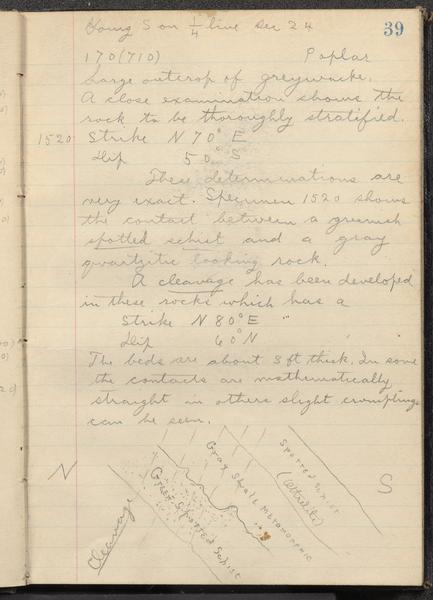 39
Going S on 1/4 line Sec 24
170 (710) Poplar
Large outcrop of greywacke.
A close examination shows the
rock to be thoroughly stratified.
1520 Strike N 70° E
Dip 50° S
These determinations are
very exact. Specimen 1520 shows
the contact between a greenish
spotted schist and a gray
qwartzitic looking rock.
A cleavage has been developed
in these rocks which has a
Strike N 80° E "
Dip 60° N
The beds are about 3 ft thick. In some
the contacts are mathematically
straight in others slight crumplings
can be seen.
N
S
Spotted Schist
(Ottrelite)
Gray Shale Metamorphic
Green Spotted Schist
Cleavage